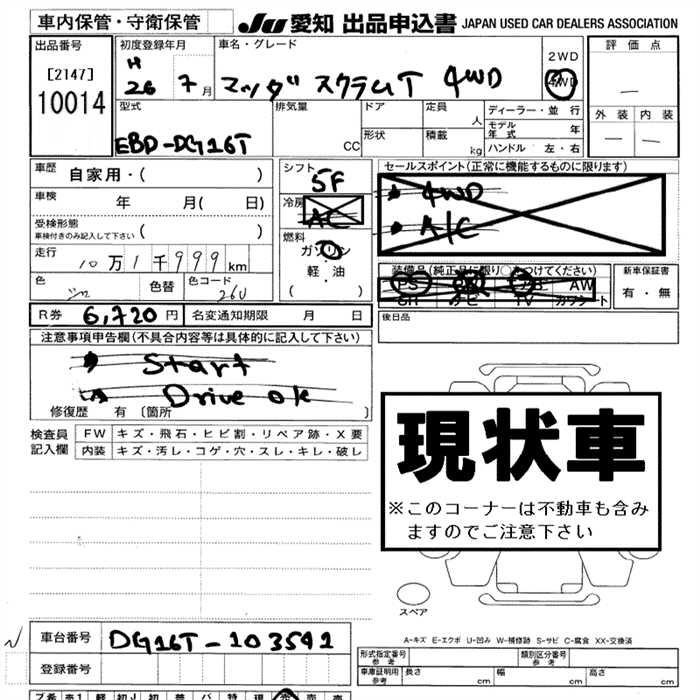 車内保管・守衛保管
JU 愛知 出品申込書 JAPAN USED CAR DEALERS ASSOCIATION
出品番号
[2147]
10014
初度登録年月
H
26 7月
車名・グレード
マツダ スクラムT 4WD
2WD
4WD
評価点
―
外装 内装
― ―
型式
EBD-DG16T
排気量
CC
ドア
形状
定員
人
積載
kg
ディーラー・並行
モデル年式 年
ハンドル 左・右
車歴
自家用・( )
車検
年 月( 日)
受検形態
車検付きのみ記入して下さい ( )
走行
10万1千999km
色
色替
色コード
26U
シフト
5F
冷房
AC
燃料
ガソリン
軽・油
( )
セールスポイント(正常に機能するものに限ります)
4WD
A/C
装備品(純正品に限り○をつけてください)
PS AB AW
SH ナビ TV カワシート
新車保証書
有・無
R券 6,720円 名変通知期限 月 日
後日品
注意事項申告欄(不具合内容等は具体的に記入して下さい)
Start
Drive ok
修復歴 有 〔箇所 〕
検査員記入欄
FW キズ・飛石・ヒビ割・リペア跡・X要
内装 キズ・汚レ・コゲ・穴・スレ・キレ・破レ
現状車
※このコーナーは不動車も含み
ますのでご注意下さい
スペア
A-キズ E-エクボ U-凹み W-補修跡 S-サビ C-腐食 XX-交換済
車台番号
DG16T-103541
登録番号
形式指定番号
参考
類別区分番号
参考
車庫証明用
参考
長さ cm 幅 cm 高さ cm